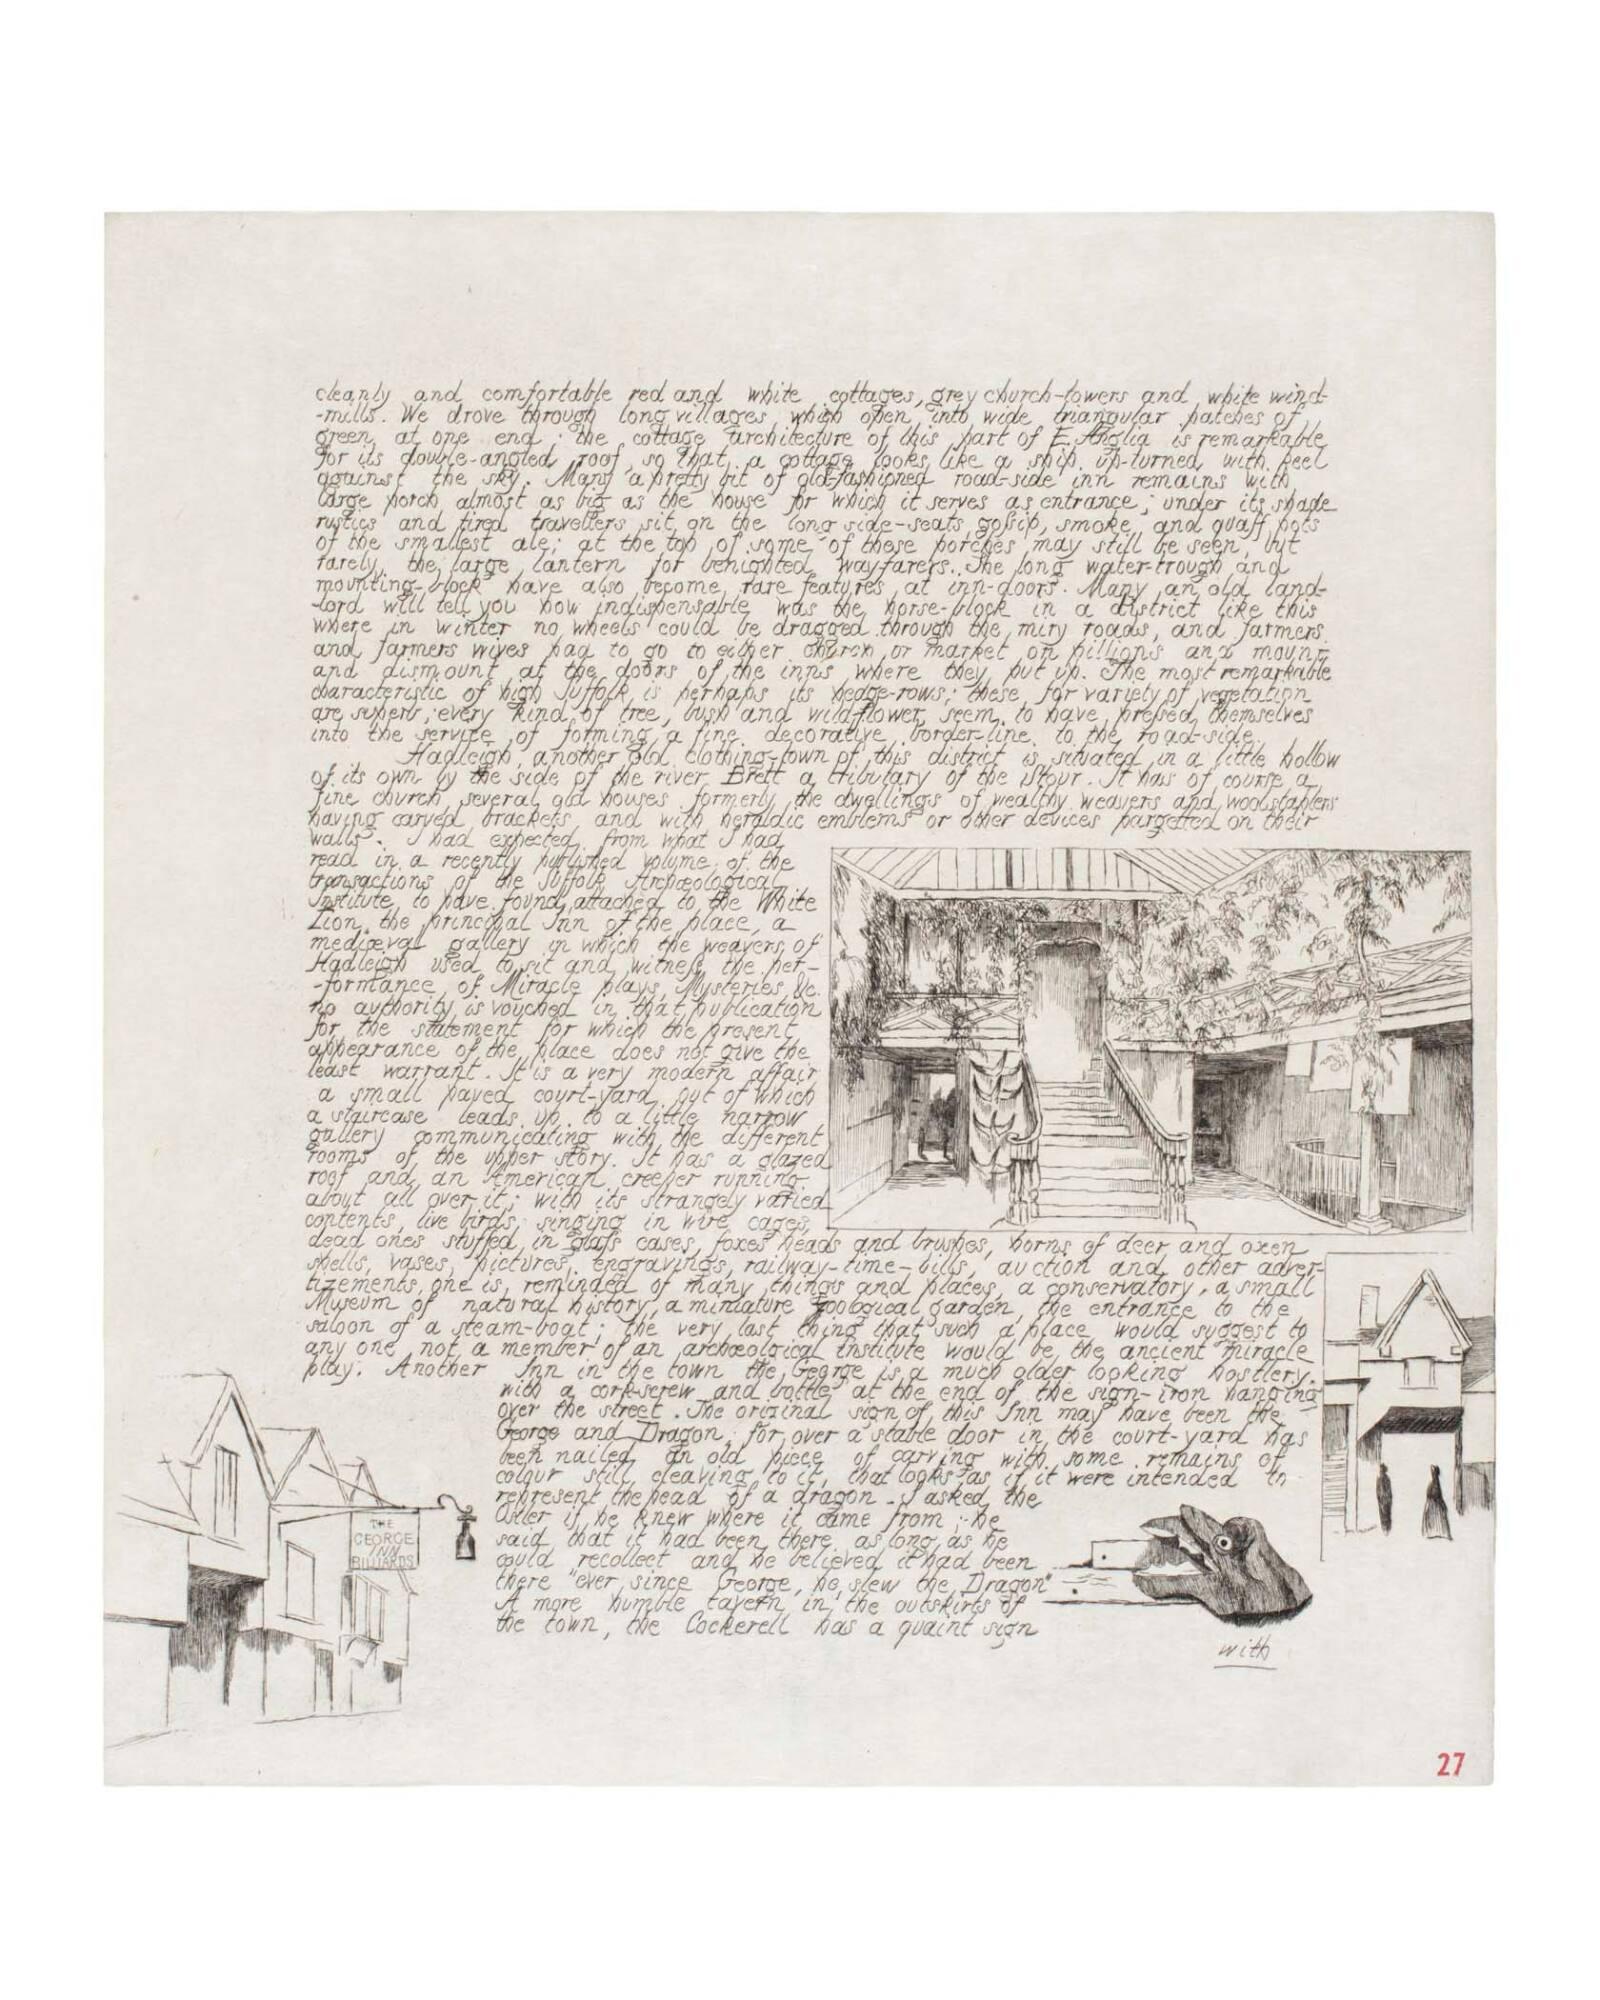 cleanly and comfortable red and white cottages, grey church-towers and white wind-
-mills. We drove through long villages which open into wide triangular patches of
green at one end; the cottage architecture of this part of E. Anglia is remarkable
for its double-angled roof, so that a cottage looks like a ship up-turned with keel
against the sky. Many a pretty bit of old-fashioned road-side inn remains with
large porch almost as big as the house for which it serves as entrance; under its shade
rustics and tired travellers sit on the long side-seats, gossip, smoke, and quaff pots
of the smallest ale; at the top of some of these porches may still be seen, but
rarely, the large lantern for benighted way-farers. The long water-trough and
mounting-block have also become rare features at inn-doors. Many an old land-
-lord will tell you how indispensable was the horse-block in a district like this
where in winter no wheels could be dragged through the miry roads, and farmers
and farmers wives had to go to either church or market on pillions and mount
and dismount at the doors of the inns where they put up. The most remarkable
characteristic of high Suffolk is perhaps its hedge-rows; these, for variety of vegetation
are superb; every kind of tree, bush and wildflower seem to have pressed themselves
into the service of forming a fine decorative border-line to the road-side.
Hadleigh, another old clothing-town of this district is situated in a little hollow
of its own by the side of the river Brett a tributary of the Stour. It has of course a
fine church, several old houses formerly the dwellings of wealthy weavers and woolstaplers
having carved brackets and with heraldic emblems or other devices pargetted on their
walls. I had expected from what I had
read in a recently published volume of the
transactions of the Suffolk Archæological
Institute to have found attached to the White
Lion, the principal Inn of the place, a
mediæval gallery in which the weavers of
Hadleigh used to sit and witness the per-
-formance of Miracle plays, Mysteries, &c.
no authority is vouched in that publication
for the statement for which the present
appearance of the place does not give the
least warrant. It is a very modern affair
a small paved court-yard out of which
a staircase leads up to a little narrow
gallery communicating with the different
rooms of the upper story. It has a glazed
roof and an American creeper running
about all over it; with its strangely varied
contents, live birds singing in wire cages,
dead ones stuffed in glass cases, foxes heads and brushes, horns of deer and oxen
shells, vases, pictures, engravings, railway-time-bills, auction and other adver-
tizements, one is reminded of many things and places, a conservatory, a small
Museum of natural history, a miniature Zoological garden, the entrance to the
saloon of a steam-boat; the very last thing that such a place would suggest to
any one not a member of an archæological institute would be the ancient miracle
play. Another Inn in the town the George is a much older looking hostlery
with a cork-screw and bottle at the end of the sign-iron hanging
over the street. The original sign of this Inn may have been the
George and Dragon, for over a stable door in the court-yard has
been nailed an old piece of carving with some remains of
colour still cleaving to it, that looks as if it were intended to
represent the head of a dragon. I asked the
Ostler if he knew where it came from; he
said that it had been there as long as he
could recollect and he believed it had been
there "ever since George, he slew the Dragon"
A more humble tavern in the outskirts of
the town, the Cockerell has a quaint sign
with
THE
GEORGE
INN
BILLIARDS
27